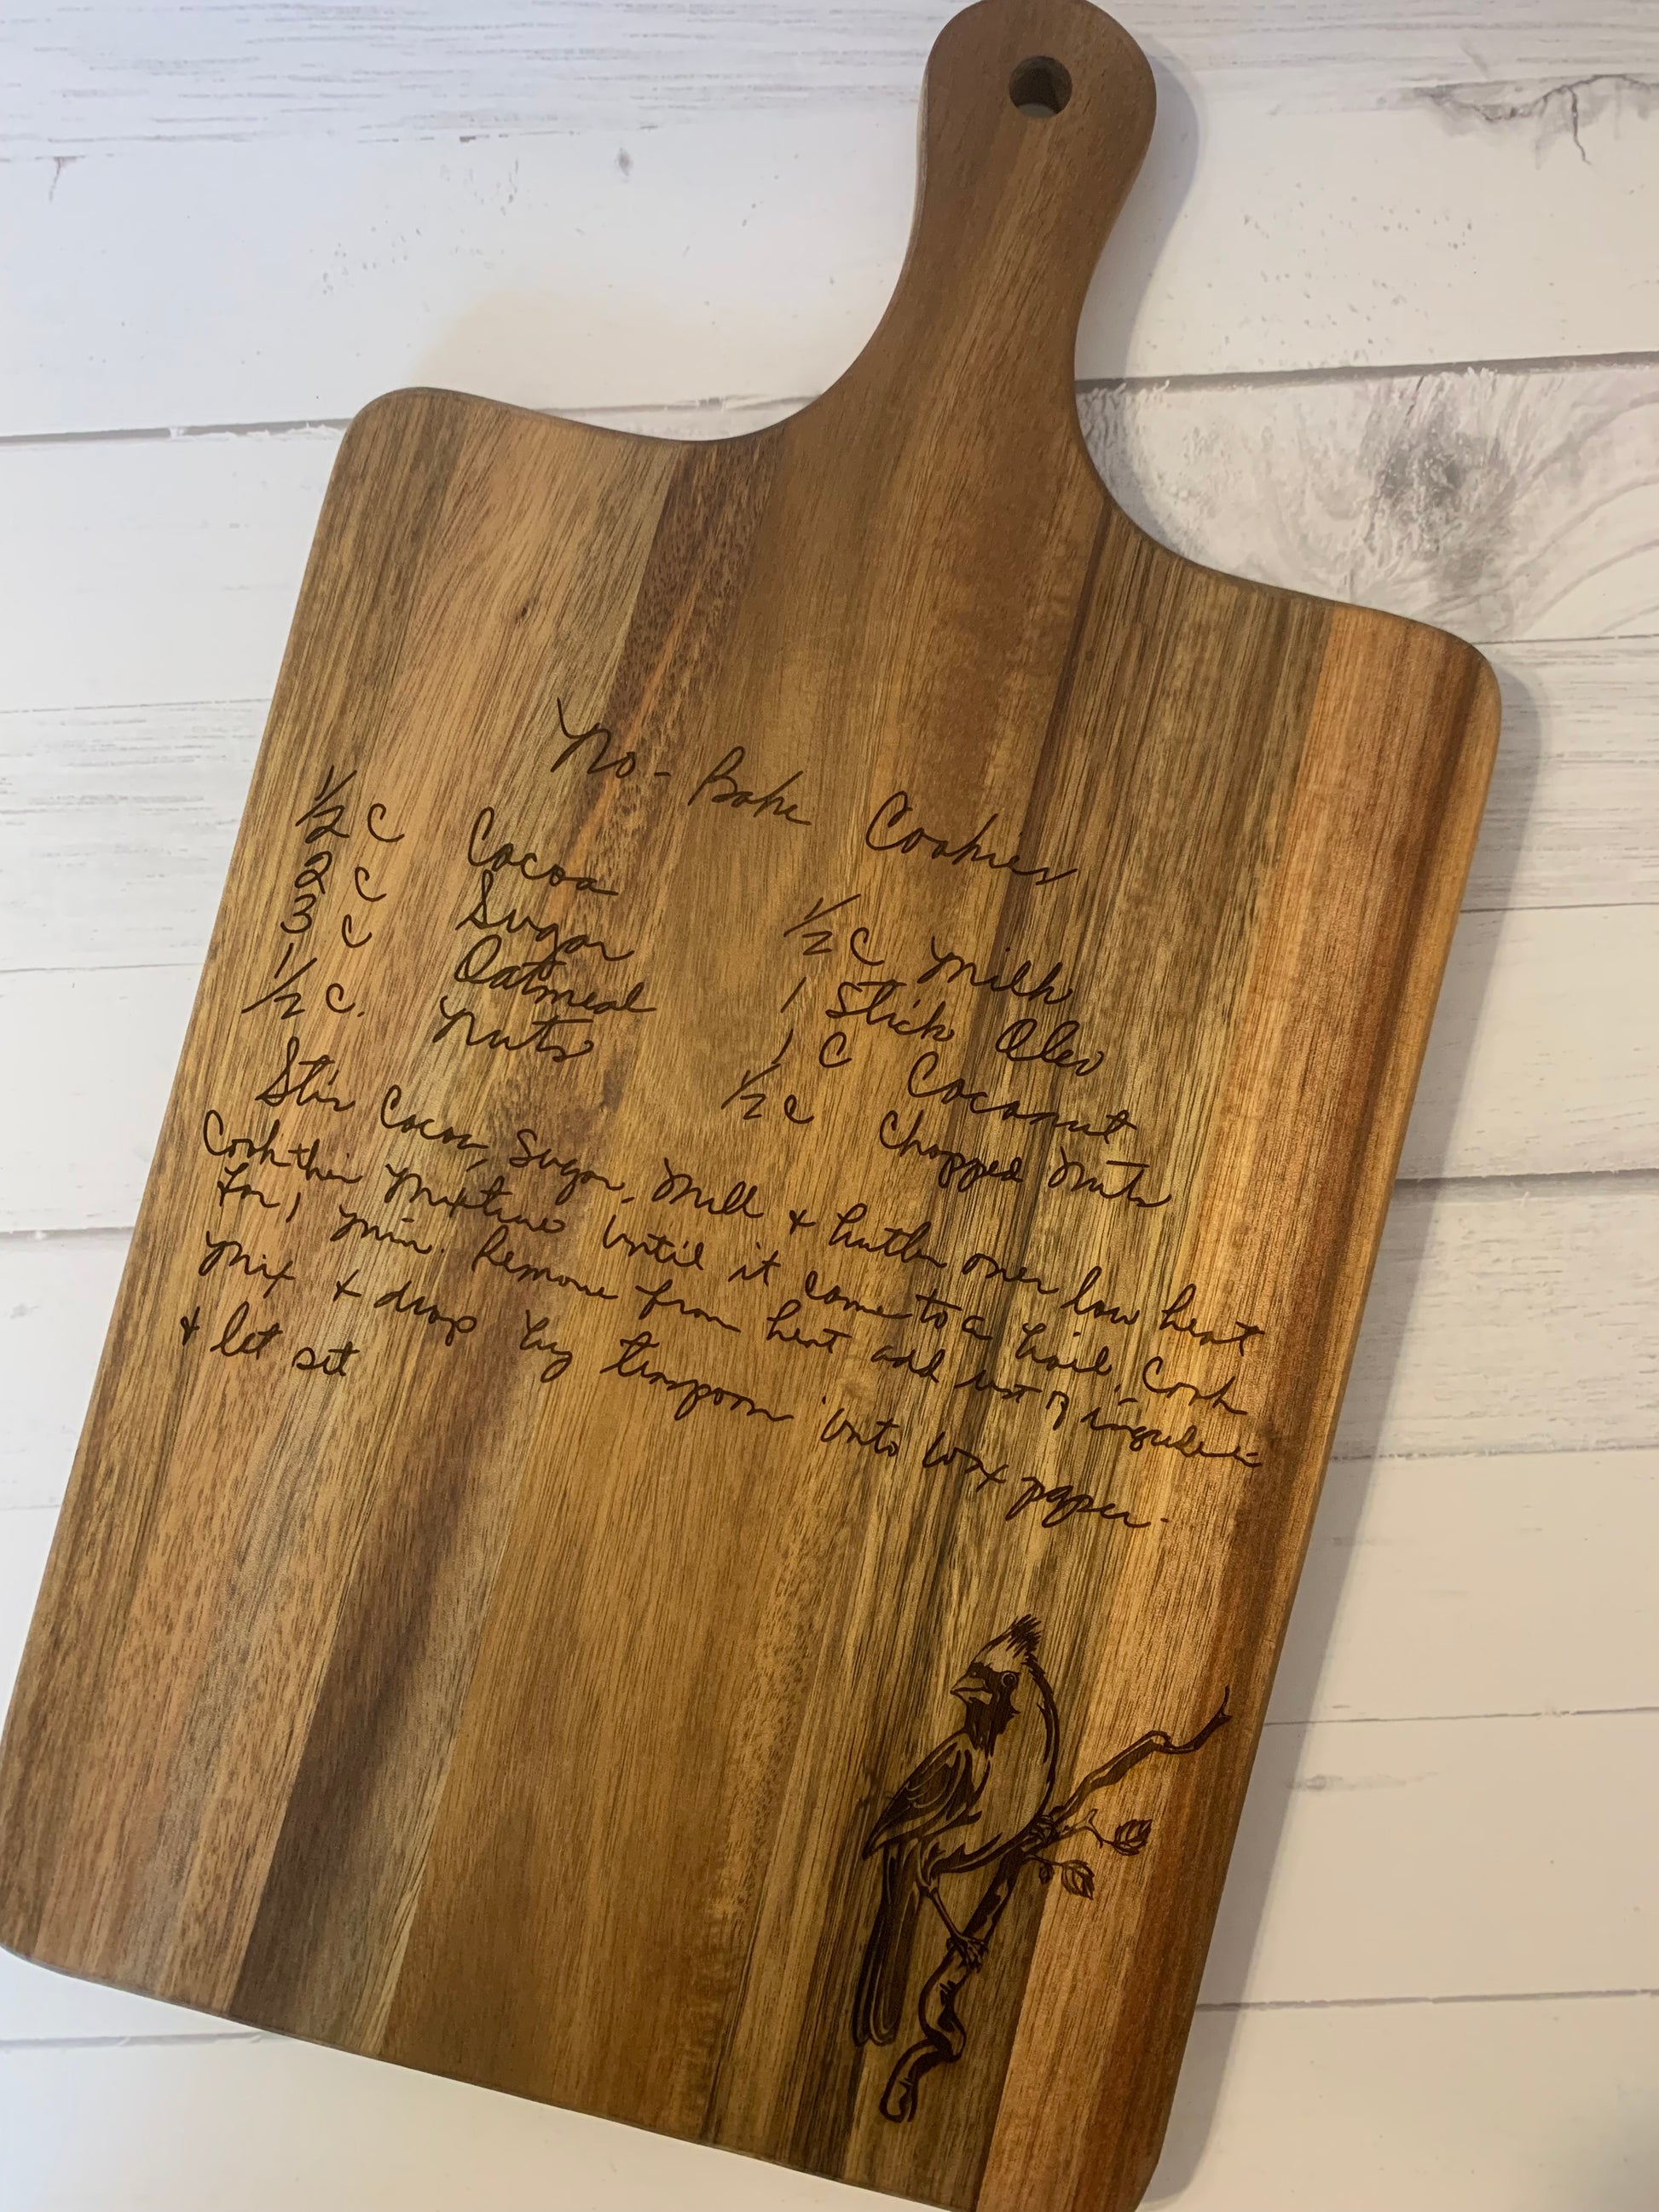 No-Bake Cookies
1/2 C Cocoa 1/2 C Milk
2 C Sugar 1 Stick Oleo
3 C Oatmeal 1 C Coconut
1/2 C. Nuts 1/2 c Chopped Nuts
Stir Cocoa, Sugar, Milk & butter over low heat
Cook this mixture until it come to a boil. Cook
for 1 min. Remove from heat add rest of
Mix & drop by teaspoon onto wax paper.
& let set